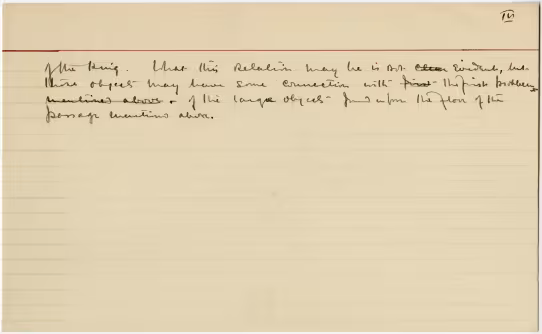 IV
of the King. What this relation may be is not clear evident, but
these objects may have some connection with first the first
mentioned above. of the large objects found upon the floor of the
passage mentioned above.